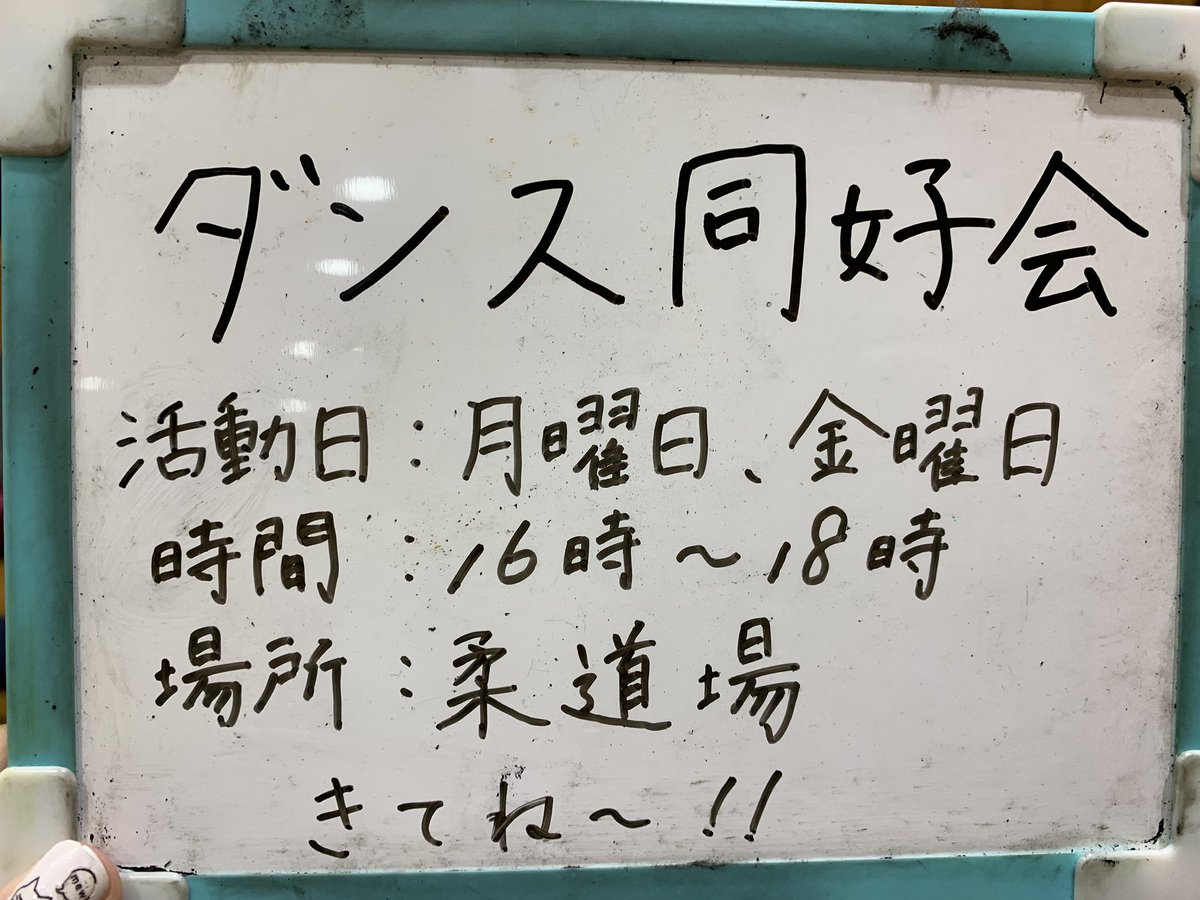 ダンス同好会
活動日:月曜日、金曜日
時間:16時〜18時
場所:柔道場
きてね〜!!
mew